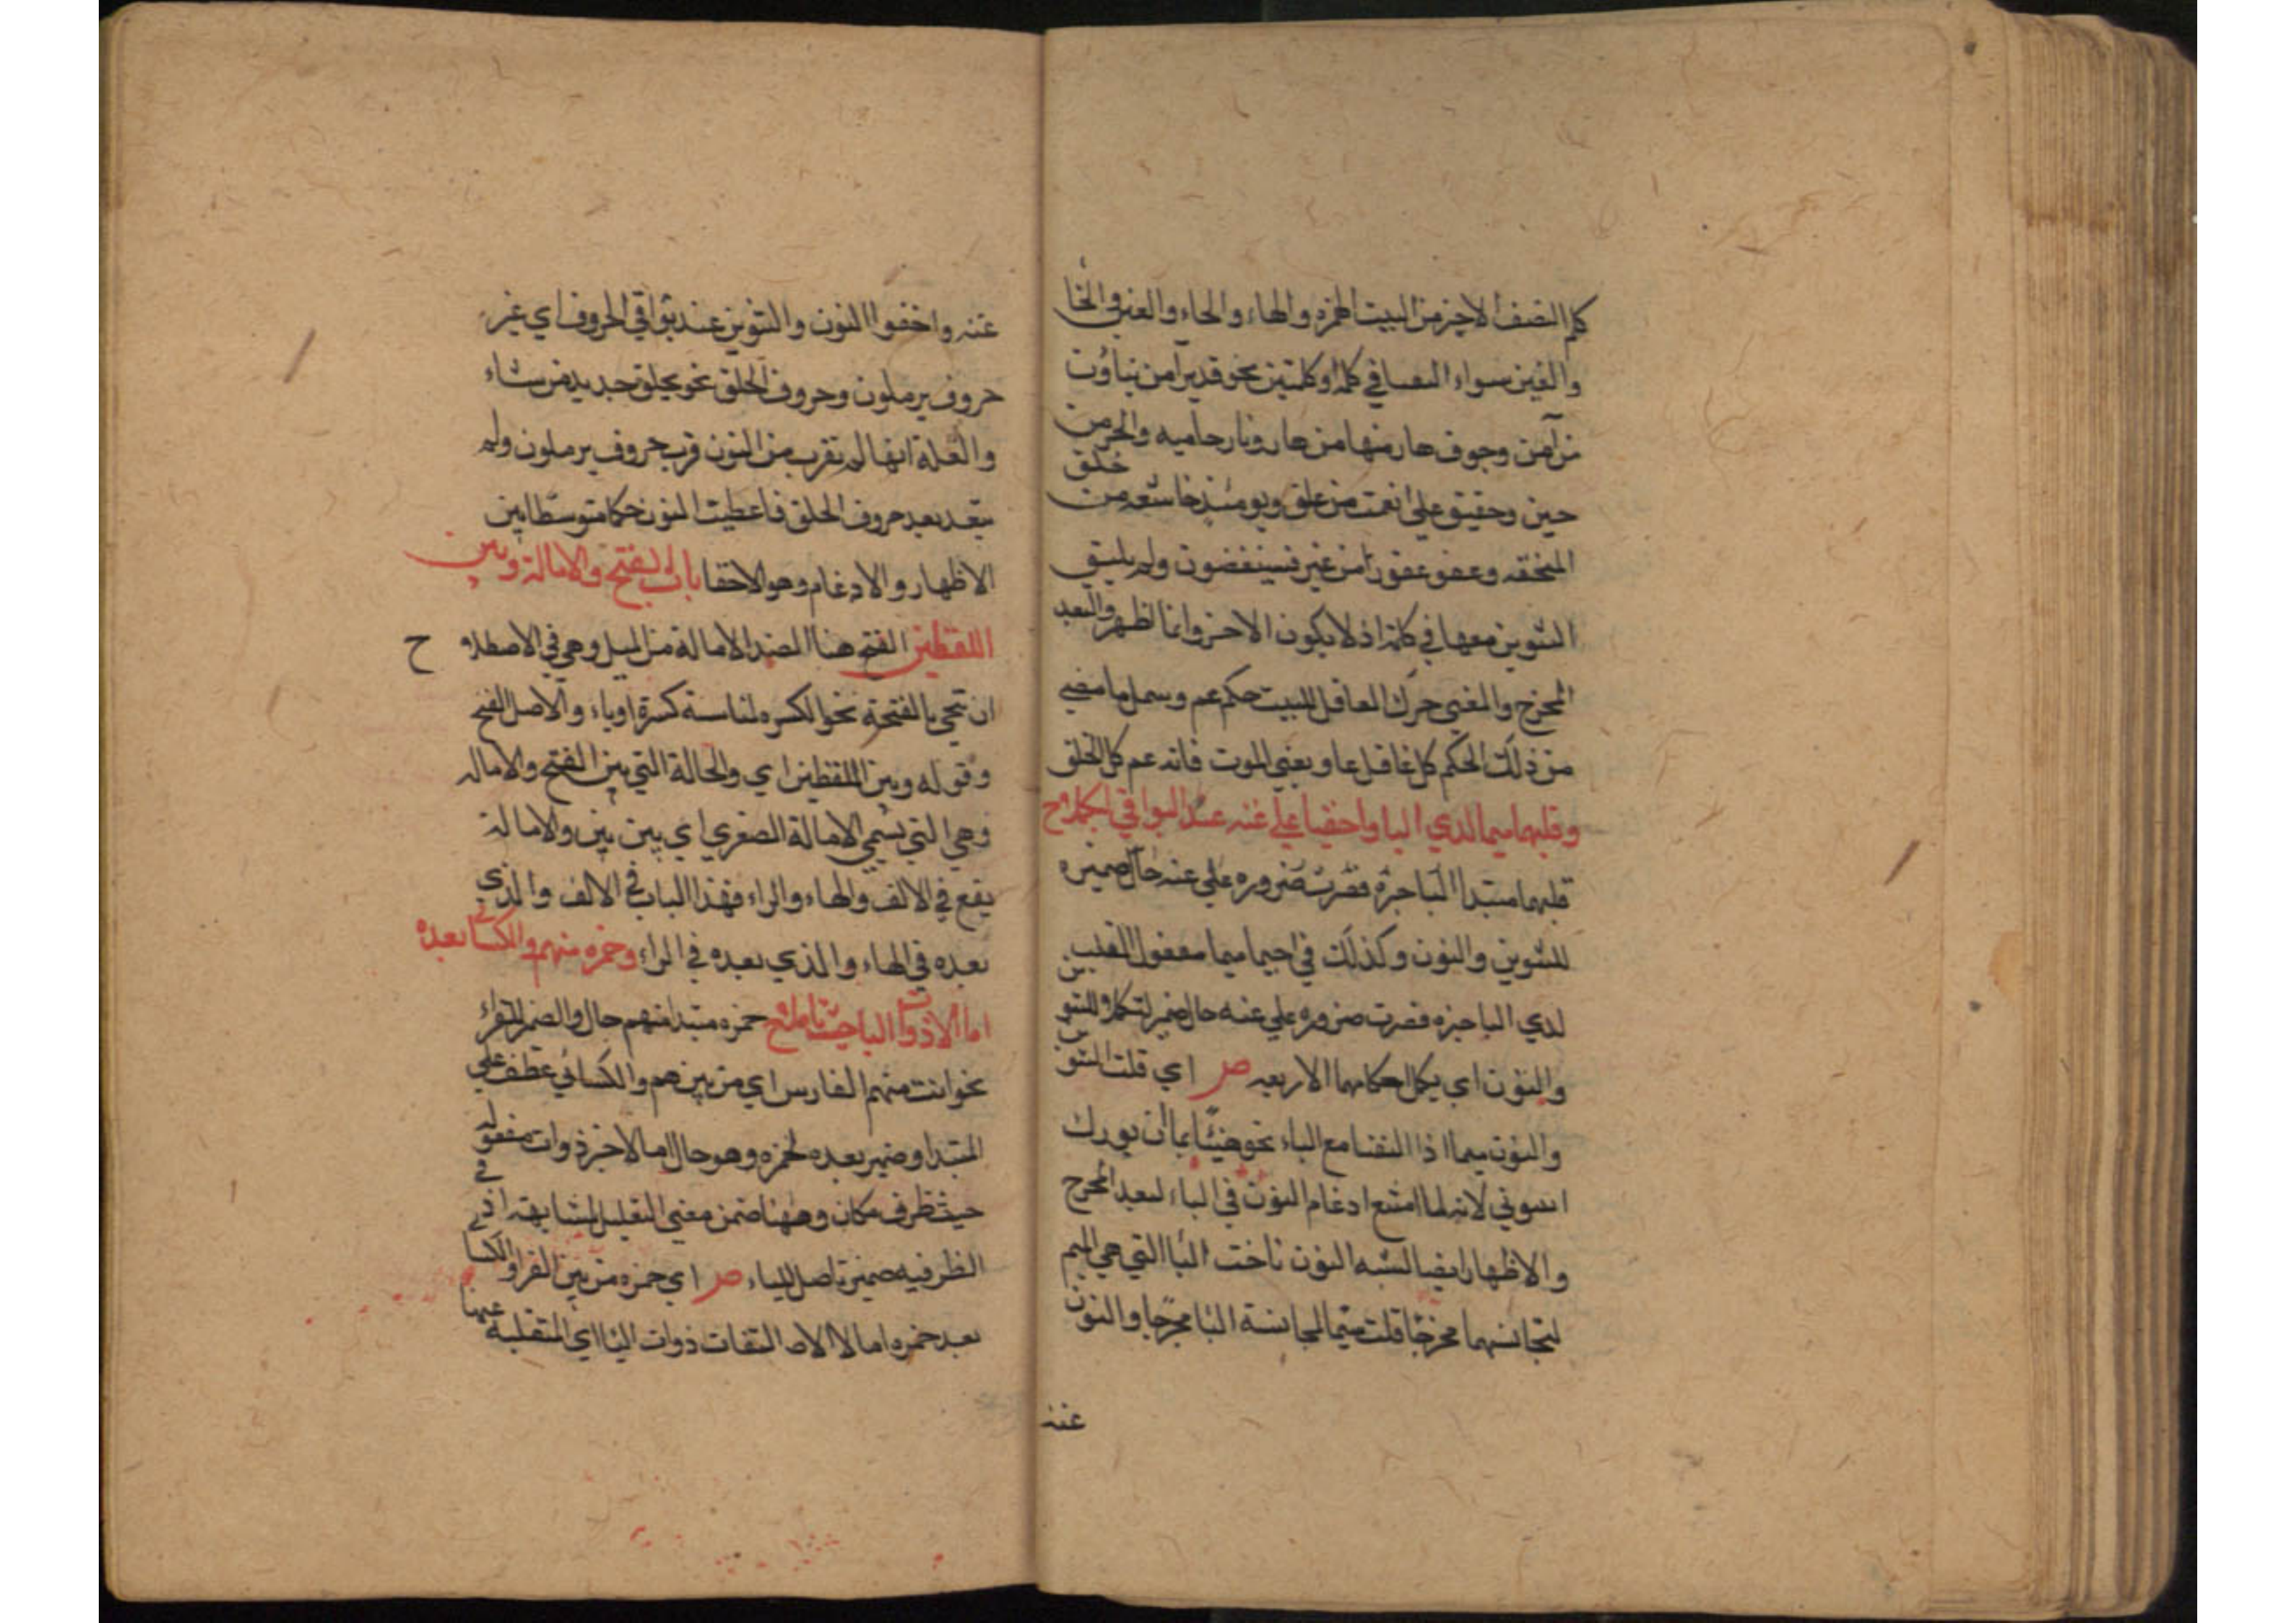 كلم النصف الاخير من البيت الهمزه والهاء والحاء والعين والخا
والغين سواء التقيا في كلمة او كلمتين نحو قديرا من نياؤن
من آمن وجوف هار منها من هار ونار حاميه وانحر من
حين وحقيق علي انعمت من علق ويومئذ خاشعه من خلق
المنخنقه وعفو غفور امن غير فسينغضون ولم يلتق
التنوين معها في كلمة اذ لا يكون الا اخرا وانما اظهر والبعد
المخرج والمعني حرك الغافل للبيت حكم عم وسهل ما مضي
من ذلك الحكم كل غافل عا ويعني الموت فانه عم كل الخلق
وقلبهما ميما لدي البا واخفيا علي غنه عند البواقي ليكملا ح
قلبهما مبتدا البا خبره فقرت ضروره علي غنه حال ضميره
للتنوين والنون وكذلك في اخيما ميما مفعول القلب
لدي البا خبره فقصرت ضروره علي غنه حال ضمير لتكملا والتنوين
والنون اي يكمل احكامهما الاربعه ص اي قلبت التنوين
والنون ميما اذا التقيا مع الباء نحو هنيئا بما ان بورك
انبئوني لانه لما امتنع ادغام النون في الباء لبعد المخرج
والاظهار ايضا لشبه النون باخت البا التي هي الميم
لتجانسهما مخرجا قلبت ميما لمجانسة البا مخرجا والنون
غنه
غنه واخفوا النون والتنوين عند بواقي الحروف اي غير
حروف يرملون وحروف الحلق نحو بخلق جديد من شاء
والعلة انها لم تقرب من النون قرب حروف يرملون ولم
يتعد بعد حروف الحلق فاعطيت النون حكما متوسطا بين
الاظهار والادغام وهو الاخفا باب الفتح والامالة وبين
اللفظين الفتح هنا الضد الامالة من الميل وهي في الاصطلاح
ان تنحي بالفتحة نحو الكسره لمناسبة كسرة اوياء والاصل الفتح
وقوله وبين اللفظين اي والحالة التي بين الفتح والاماله
وهي التي يسمي الامالة الصغري اي بين بين والامالة
يقع في الالف والهاء والراء فهذا الباب في الالف والذي
بعده في الهاء والذي بعده في الراء وحمزه منهم والكسائي بعده
اما لا ذوات اليا حيث تاصلا ح حمزه مبتدا منهم حال والضمير للقراء
نحو انت منهم الفارس اي من بينهم والكسائي عطف علي
المبتدا وضمير بعده لحمزه وهو حال اما لا خبر ذوات مفعوله
حيث ظرف مكان وههنا ضمن معني التعليل لمشابهته اذ في
الظرفيه ضمير تاصل للياء ص اي حمزه من بين القرا والكسائي
بعد حمزه امالا الالفات ذوات اليا اي المنقلبة عنها